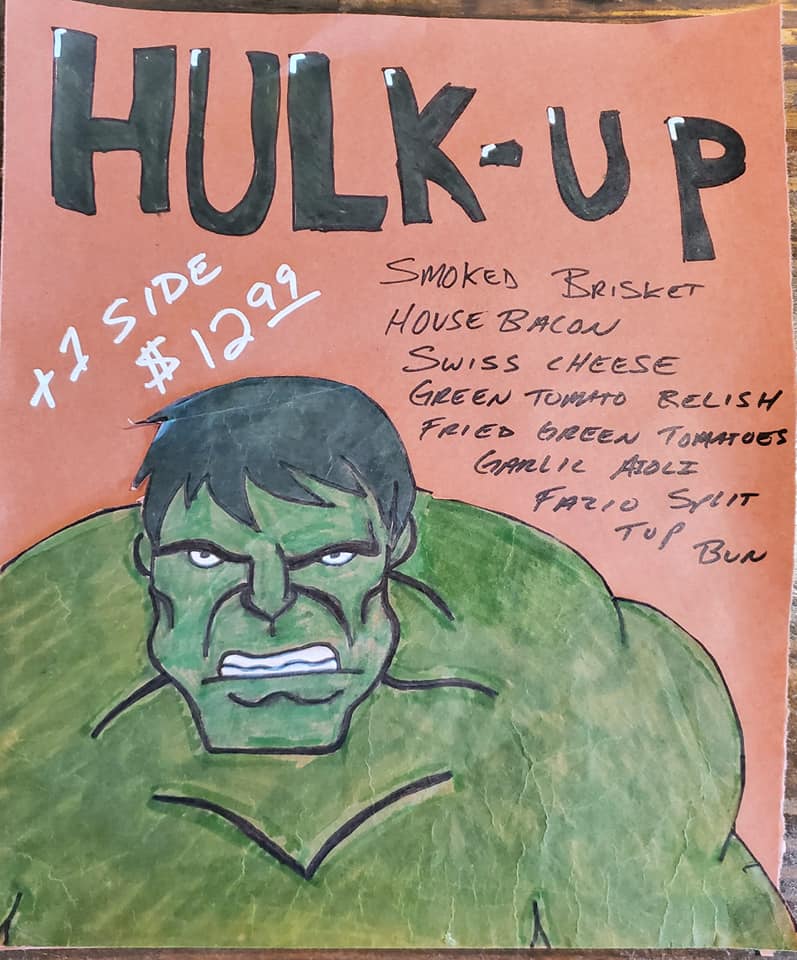 HULK-UP
+1 SIDE
$12.99
SMOKED BRISKET
HOUSE BACON
SWISS CHEESE
GREEN TOMATO RELISH
FRIED GREEN TOMATOES
GARLIC AIOLI
FAZIO SPLIT
TOP
BUN